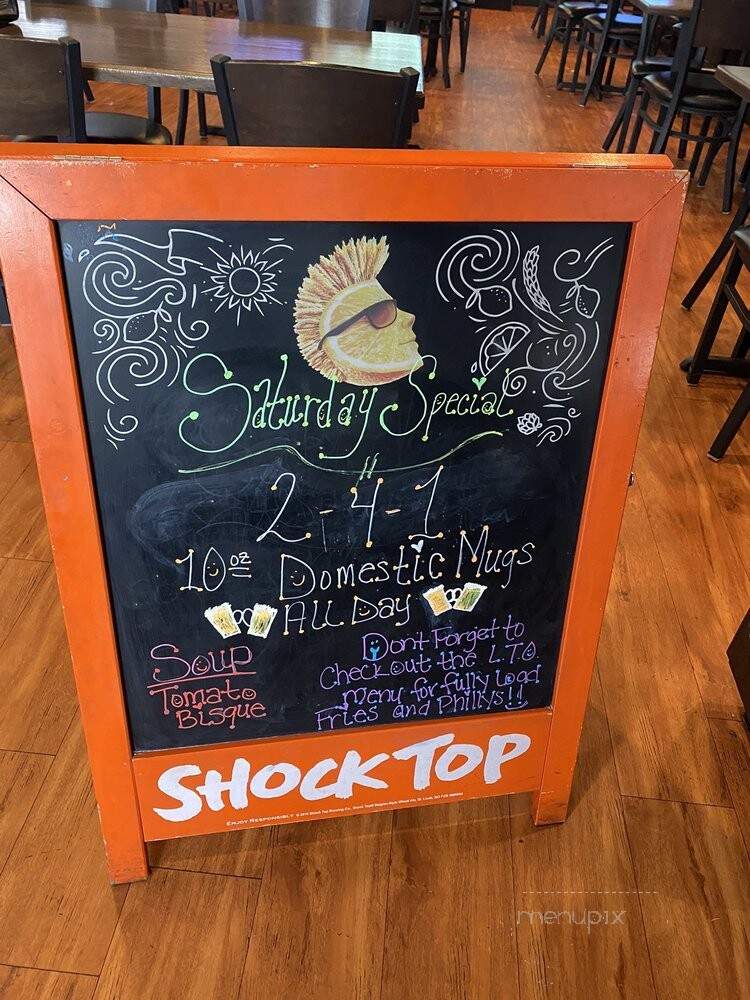 Saturday Special
2-4-1
10 oz Domestic Mugs
All Day
Soup
Tomato
Bisque
Dont Forget to
Check out the L.T.O.
menu for fully load
Fries and Phillys!!
SHOCK TOP
ENJOY RESPONSIBLY
menupix